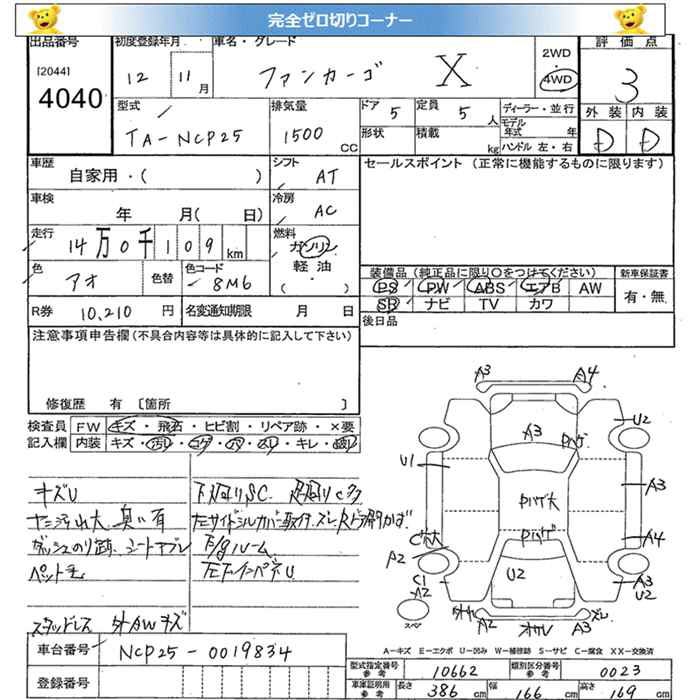 完全ゼロ切りコーナー
出品番号 初度登録年月 車名・グレード 2WD 評価点
[2044] 4040 12 11月 ファンカーゴ X 4WD 3
型式 排気量 ドア 定員 ディーラー・並行 外装 内装
TA-NCP25 1500 CC 5 5人 モデル年式 年 D D
形状 積載 kg ハンドル 左・右
車歴 シフト セールスポイント(正常に機能するものに限ります)
自家用・( ) AT
車検 冷房
年 月( 日) AC
走行 燃料
14万0千109km ガソリン
軽油
・
( )
色 アオ 色替 色コード 8M6
装備品(純正品に限り○をつけてください) 新車保証書
PS PW ABS エアB AW 有・無
SR ナビ TV カワ
R券 10,210 円 名変通知期限 月 日
後日品
注意事項申告欄(不具合内容等は具体的に記入して下さい)
修復歴 有 〔箇所 〕
検査員 FW キズ・飛石・ヒビ割・リペア跡・×要
記入欄 内装 キズ・汚れ・コゲ・穴・スレ・キレ・破れ
A3 A4
A3 Pハゲ U2
U1 A3
Pハゲ大
Cボ大 Pハゲ A4
A2
C1 U2 A3
A2 U2
スペ A2 オサレ A3 ズレ
キズU 下回りSC 足回りCタク
ナミ汚れ大 臭い有
ダッシュのり跡 シートヤブレ
ペット毛
スタッドレス 外AWキズ
A―キズ E―エクボ U―凹み W―補修跡 S―サビ C―腐食 XX―交換済
車台番号 NCP25-0019834
登録番号
型式指定番号 参考 10662 類別区分番号 参考 0023
車庫証明用 参考 長さ 386 cm 幅 166 cm 高さ 169 cm